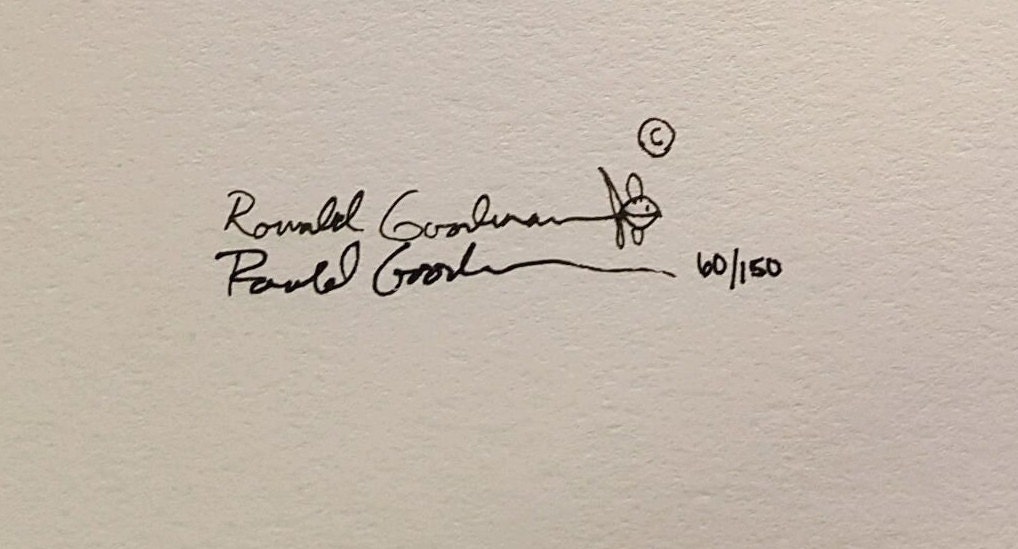 ©
Ronald Goodman
Ronald Goodman 60/150